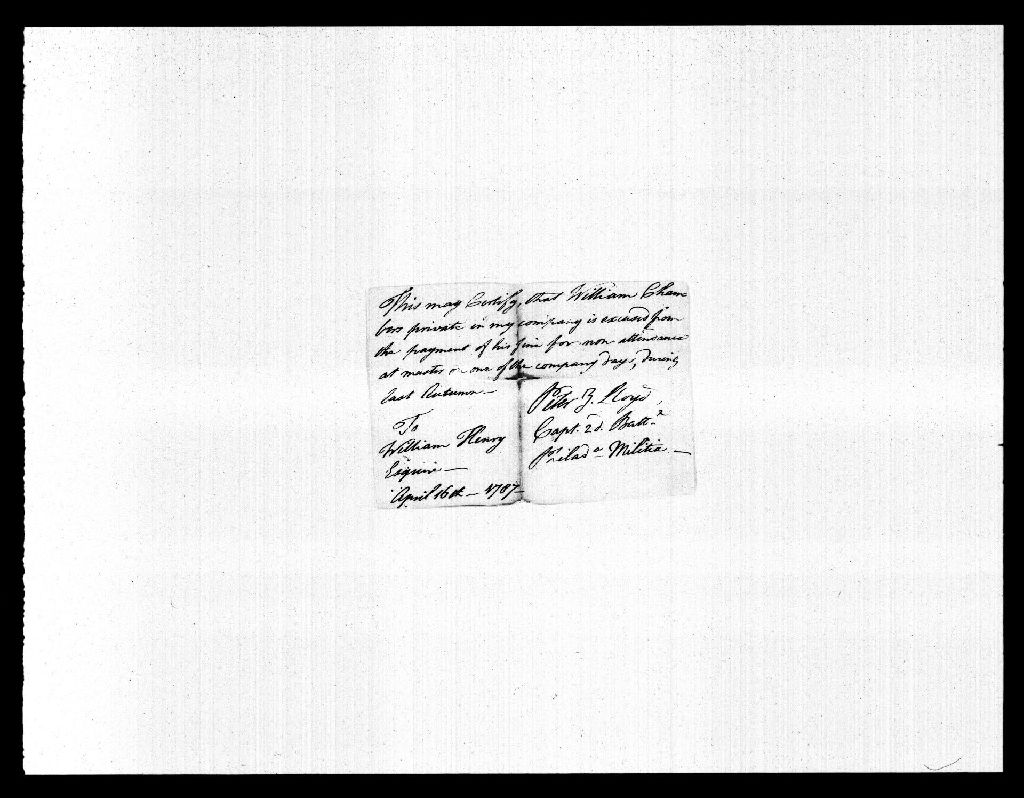 This may Certify, that William Cham
bers private in my company is excused from
the payment of his fine for non attendance
at muster on one of the company days, during
last Autumn.—
To
William Henry
Esquire—
April 16th — 1787—
Peter Z. Lloyd,
Capt. 2d. Battn.
Philada. Militia —